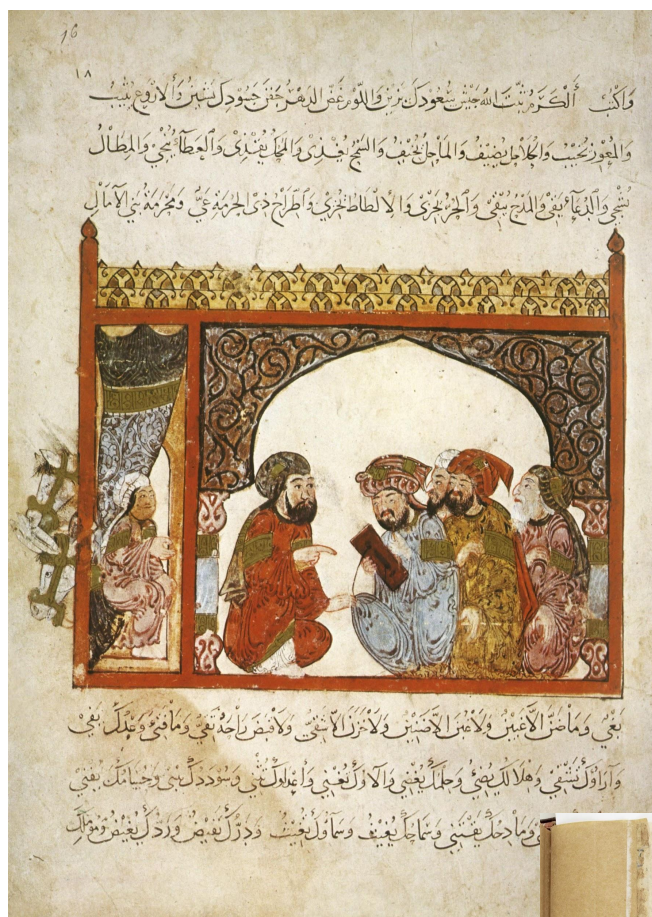 16
١٨
واكتب الكرم ثبت الله جيش سعودك يزين واللوم غض الدهر جفن حسودك يشين والاروع يثيب
والمعور يخيب والحلاحل يضيف والماحل يخيف والسمح يغذى والمحك يقذى والعطآ ينجى والمطال
يشجى والدعآء يقى والمدح ينقى والحر يجزى والالطاط يخزى واطراح ذى الحرمة غى ومحرمة بنى الآمال
بغى وما ضن الا غبين ولا غبن الا ضنين ولا خزن الا شقى ولا قبض راحه تقى وما فتئ وعدك يفى
وآراؤك تشفى وهلالك يضئ وحلمك يغضى وآلاوك تغنى واعداوك تثنى وسوددك يبنى وحسامك يفنى
ومادحك يقتنى وسماحك يغيث وسماوك تغيث ودرك يفيض وردك يغيض ومؤملك